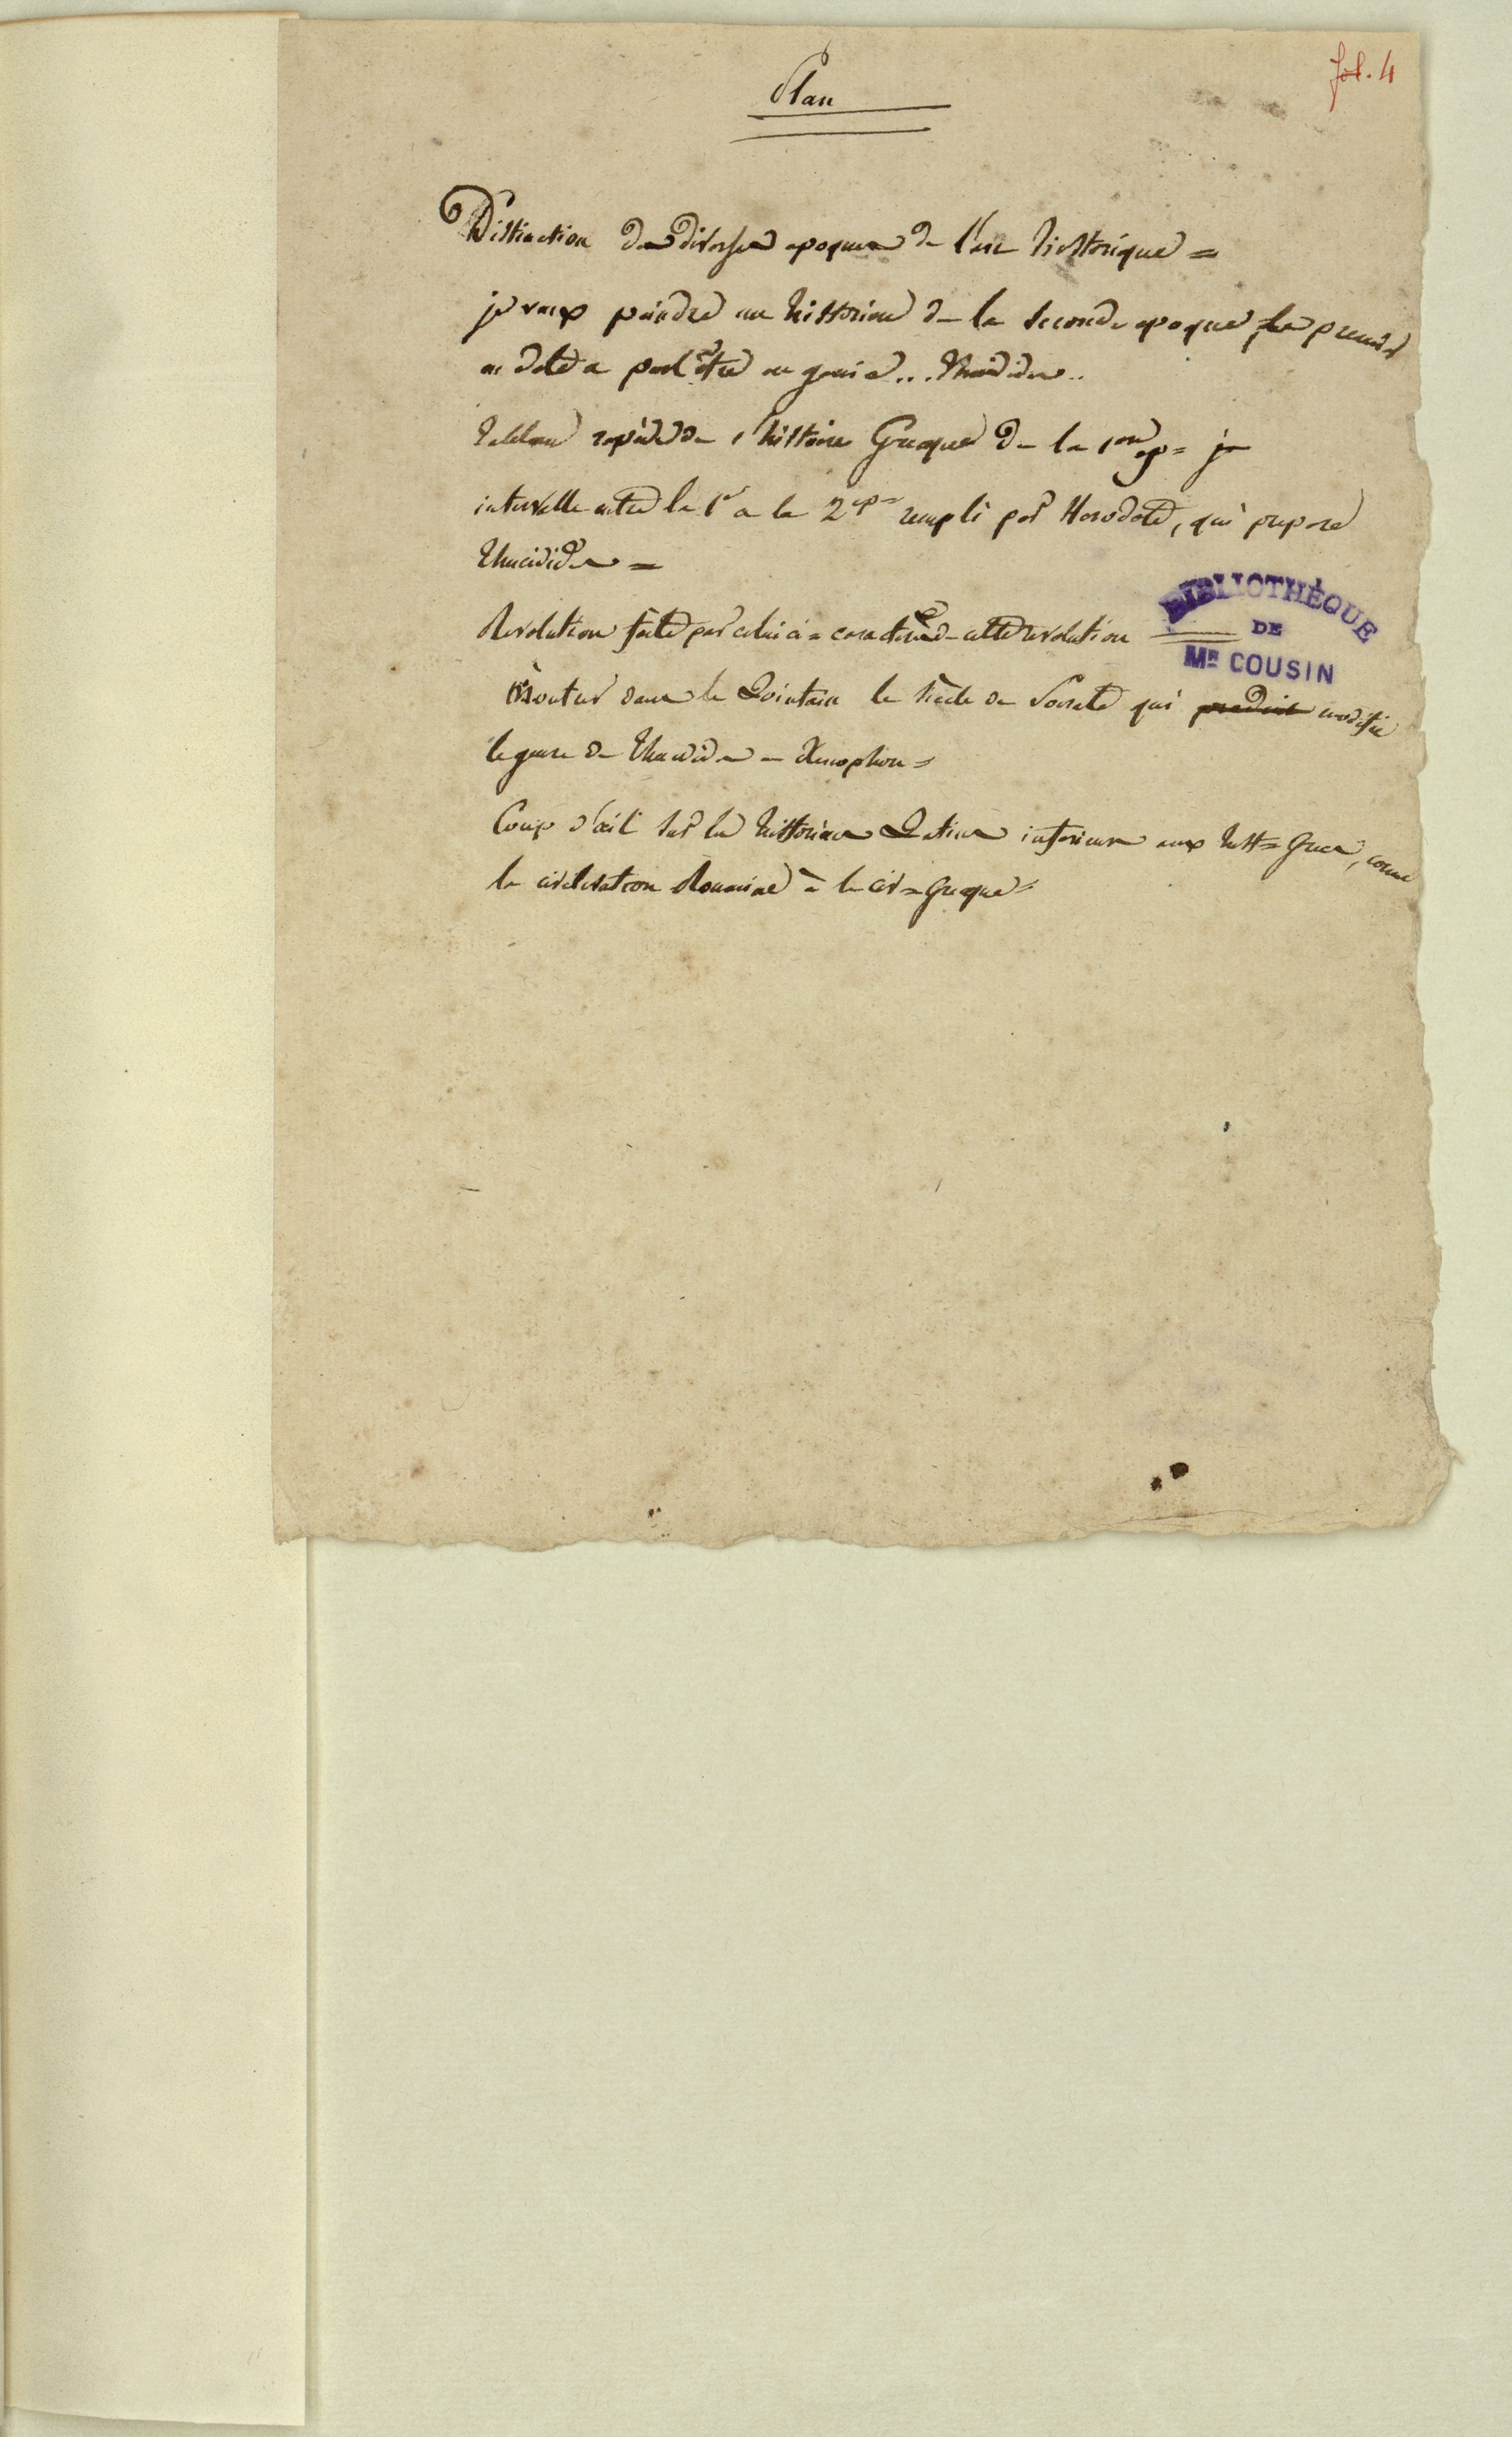 fol. 4
Plan
Distinction des diverses epoques de l'art historique =
je veux peindre un historien de la seconde epoque, le premier
en date a peut être en genie... Thucidides..
Tableau rapide de l'histoire Grecque de la 1ere ep=
intervalle entre la 1e a la 2 ep= rempli par Herodote, qui prepare
Thucidides =
Revolution faite par celui ci = caractere de cette revolution
BIBLIOTHÈQUE
DE
MR COUSIN
Montrer dans le Lointain le siecle de Socrate qui produit modifie
le genre de Thucidides = Xenophon =
Coup d'œil sur les historiens Latins inferieurs aux hist= Grecs, comme
la civilisation Romaine à la civ= Grecque =